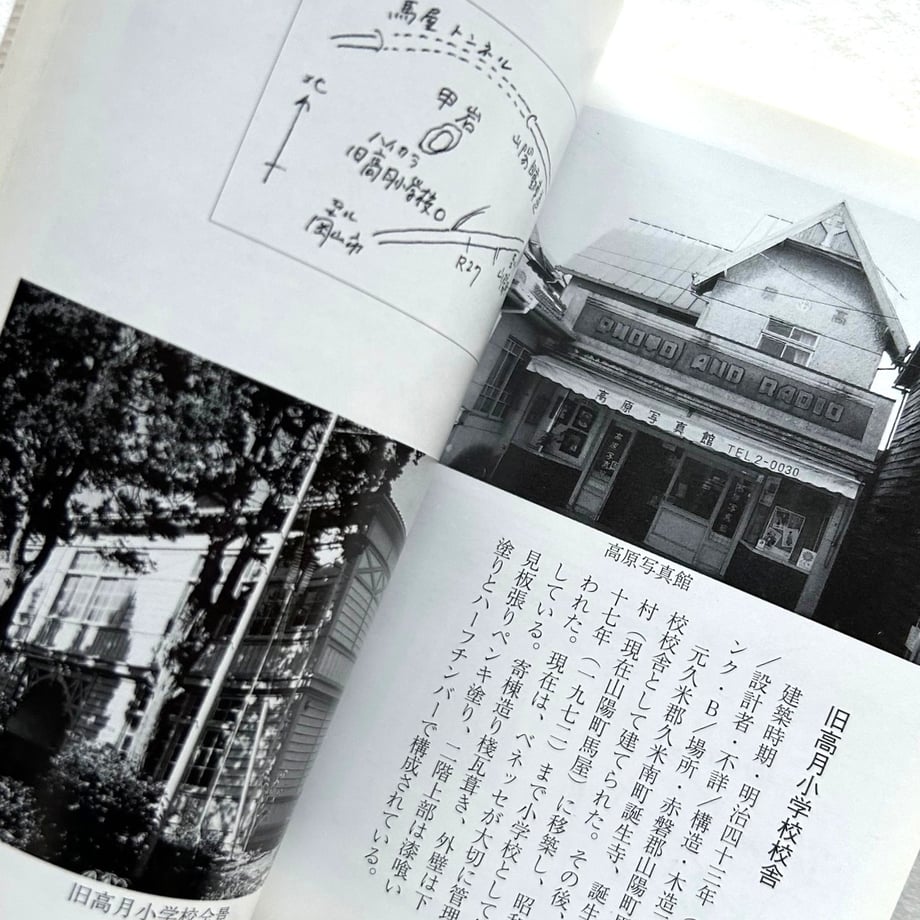 馬屋トンネル
北
甲岩
ハイカラ
旧高月小学校
至ル
岡山市
R27
山陽
旧高月小学校全景
PHOTO AND RADIO
高原写真館
TEL2-0030
高原写真館
旧高月小学校校舎
建築時期・明治四十三年
/設計者・不詳/構造・木造
ンク・B/場所・赤磐郡山陽町
元久米郡久米南町誕生寺、誕生
校校舎として建てられた。
村(現在山陽町馬屋)に移築し、昭和
十七年(一九七二)まで小学校として
われた。現在は、ベネッセが大切に管理
している。寄棟造り桟瓦葺き、外壁は下
見板張りペンキ塗り、二階上部は漆喰い
塗りとハーフチンバーで構成されている。